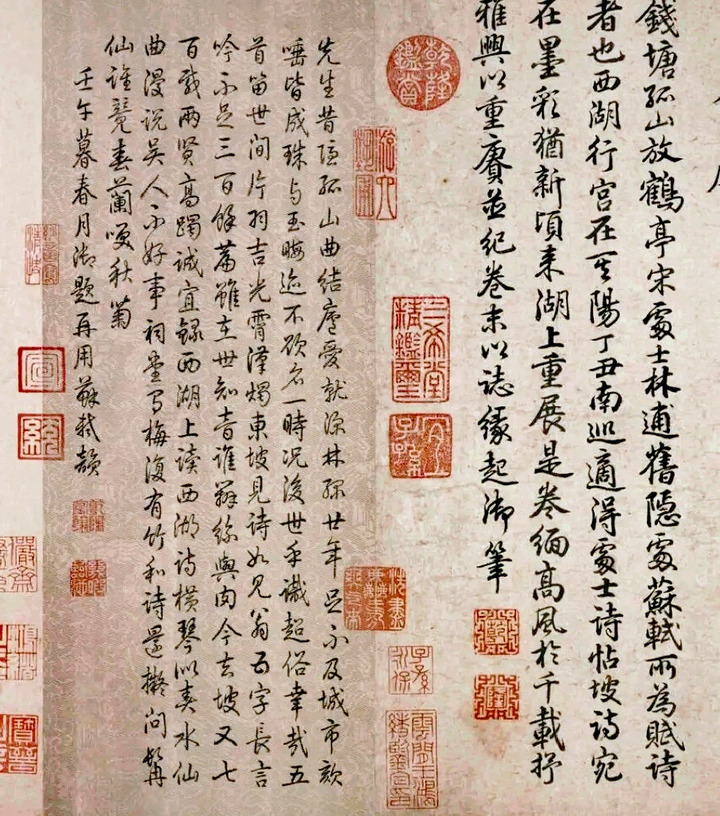 錢塘孤山放鶴亭宋處士林逋舊隱處蘇軾所為賦詩
者也西湖行宮在其陽丁丑南巡適得處士詩帖坡詩宛
在墨彩猶新頃来湖上重展是卷緬高風於千載抒
雅興以重賡並紀卷末以誌緣起御筆
乾隆鑑賞
三希堂精鑑璽
宜子孫
子孫永保
先生昔隱孤山曲結廬愛就深林綠廿年足不及城市欬
唾皆成珠與玉晦迹不欲名一時況後世乎譏超俗幸哉五
首留世間片羽吉光霄漢燭東坡見詩如見翁百字長言
吟不足三百餘篇雖在世知音誰辨絲與肉今去坡又七
百載兩賢高躅誠宜錄西湖上讀西湖詩橫琴以奏水仙
曲漫說吳人不好事祠堂有梅復有竹和詩還擬問髯
仙誰競春蘭嗅秋菊
壬午暮春月御題再用蘇軾韻
宣統